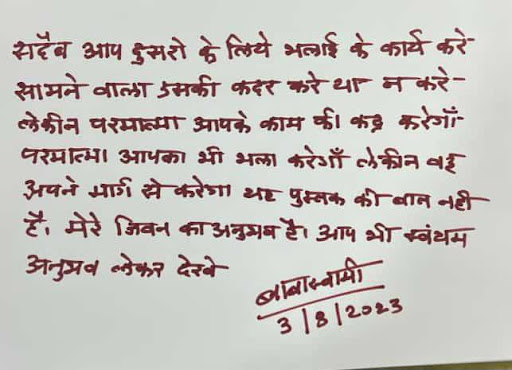 सदैव आप दुसरो के लिये भलाई के कार्य करे
सामने वाला उसकी कदर करे या न करे-
लेकीन परमात्मा आपके काम की कद्र करेगाँ-
परमात्मा आपका भी भला करेगाँ लेकीन वह
अपने मार्ग से करेगा यह पुस्तक की बात नही
है। मेरे जिवन का अनुभव है। आप भी स्वंयम
अनुभव लेकर देखे
बाबास्वामी
3/8/2023